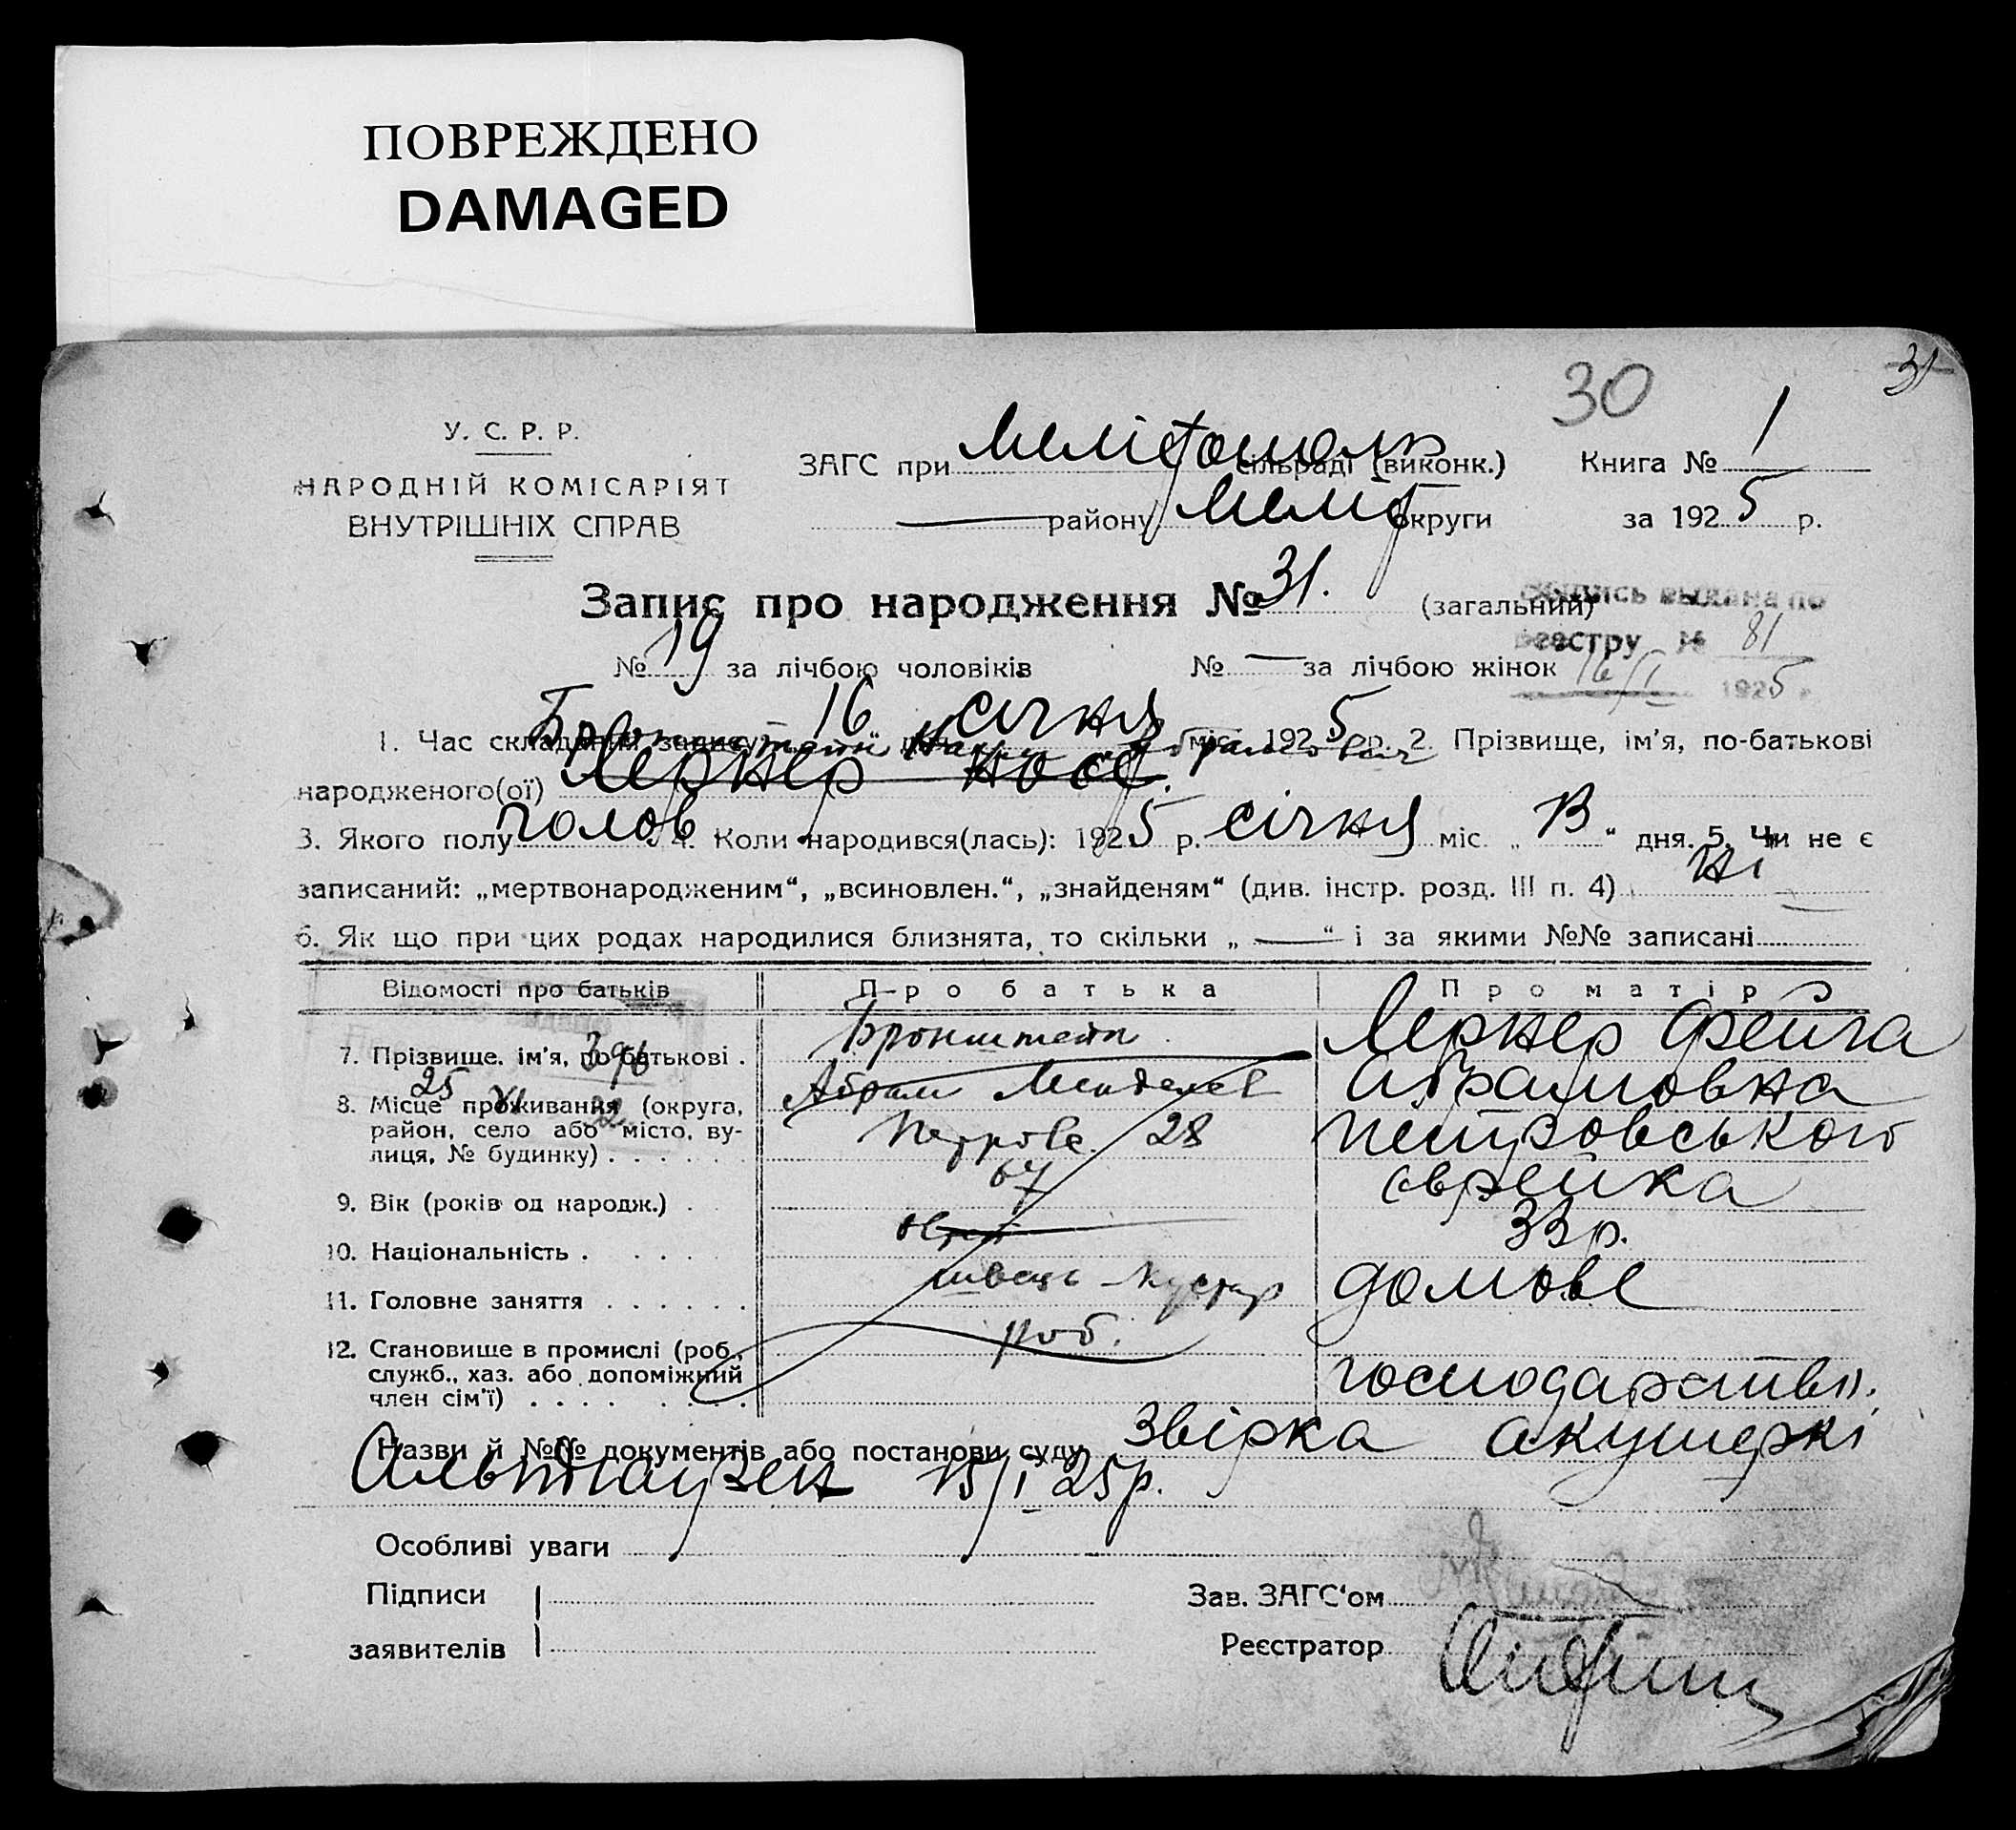 ПОВРЕЖДЕНО
DAMAGED
30
31
У. С. Р. Р.
НАРОДНІЙ КОМІСАРІЯТ
ВНУТРІШНІХ СПРАВ
ЗАГС при Мелітополь сільраді (виконк.) Книга № 1
— району Меліт округи за 1925 р.
Запис про народження № 31. (загальний)
выдана по
реестру № 81
16/I 1925 г.
№ 19 за лічбою чоловіків № — за лічбою жінок
1. Час складання запису 16 січня міс. 1925 р. 2. Прізвище, ім'я, по-батькові
Бронштейн Абрамович
народженого(ої) Лернер Йосе.
3. Якого полу чолов. 4. Коли народився(лась): 1925 р. січня міс. „ 13 “ дня. 5. Чи не є
записаний: „мертвонародженим“, „всиновлен.“, „знайденям“ (див. інстр. розд. III п. 4) ні
6. Як що при цих родах народилися близнята, то скільки „ — “ і за якими №№ записані
Відомості про батьків Про батька Про матір
7. Прізвище, ім'я, по батькові . Бронштейн Абрам Лернер Фейга Абрамовна
396
25 XI 32
8. Місце проживання (округа, район, село або місто, вулиця, № будинку) . . . . . . 28 Петровського
9. Вік (років од народж.) . 67 єврейка
10. Національність . . . . . 33 р.
11. Головне заняття . . . . . . швець кустар домове
12. Становище в промислі (роб., служб., хаз. або допоміжний член сім'ї) . . . . . . . . роб. господарство.
Назви й №№ документів або постанови суду Звірка акушеркі
Альтгаузен 15/I 25 р.
Особливі уваги
Підписи
заявителів
Зав. ЗАГС'ом
Реєстратор